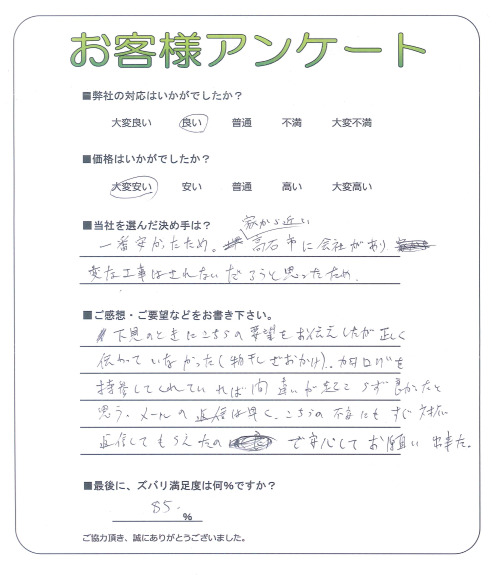 お客様アンケート
■弊社の対応はいかがでしたか？
大変良い 良い 普通 不満 大変不満
■価格はいかがでしたか？
大変安い 安い 普通 高い 大変高い
■当社を選んだ決め手は？
家から近い
一番安かったため。高石市に会社があり
変な工事はされないだろうと思ったため。
■ご感想・ご要望などをお書き下さい。
下見のときにこちらの要望をお伝えしたが正しく
伝わっていなかった(物干しざおかけ)。カタログを
持参してくれていれば間違いが起こらず良かったと
思う。メールの返信は早く、こちらの不安にもすぐ対応
返信してもらえたので安心してお願い出来た。
■最後に、ズバリ満足度は何%ですか？
85.
%
ご協力頂き、誠にありがとうございました。